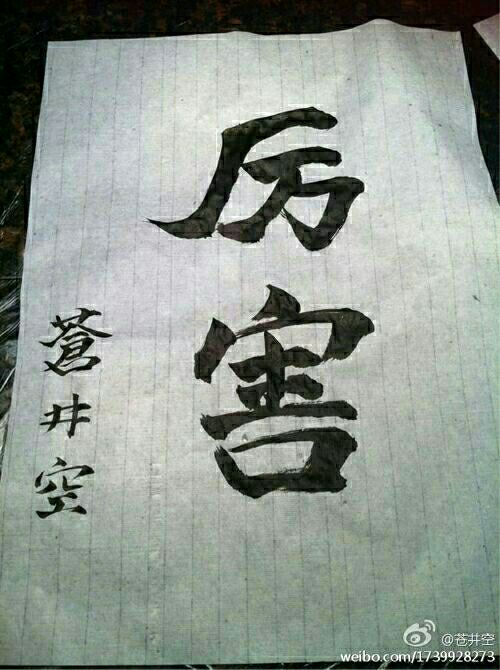 厉害
蒼井空
@苍井空
weibo.com/1739928273